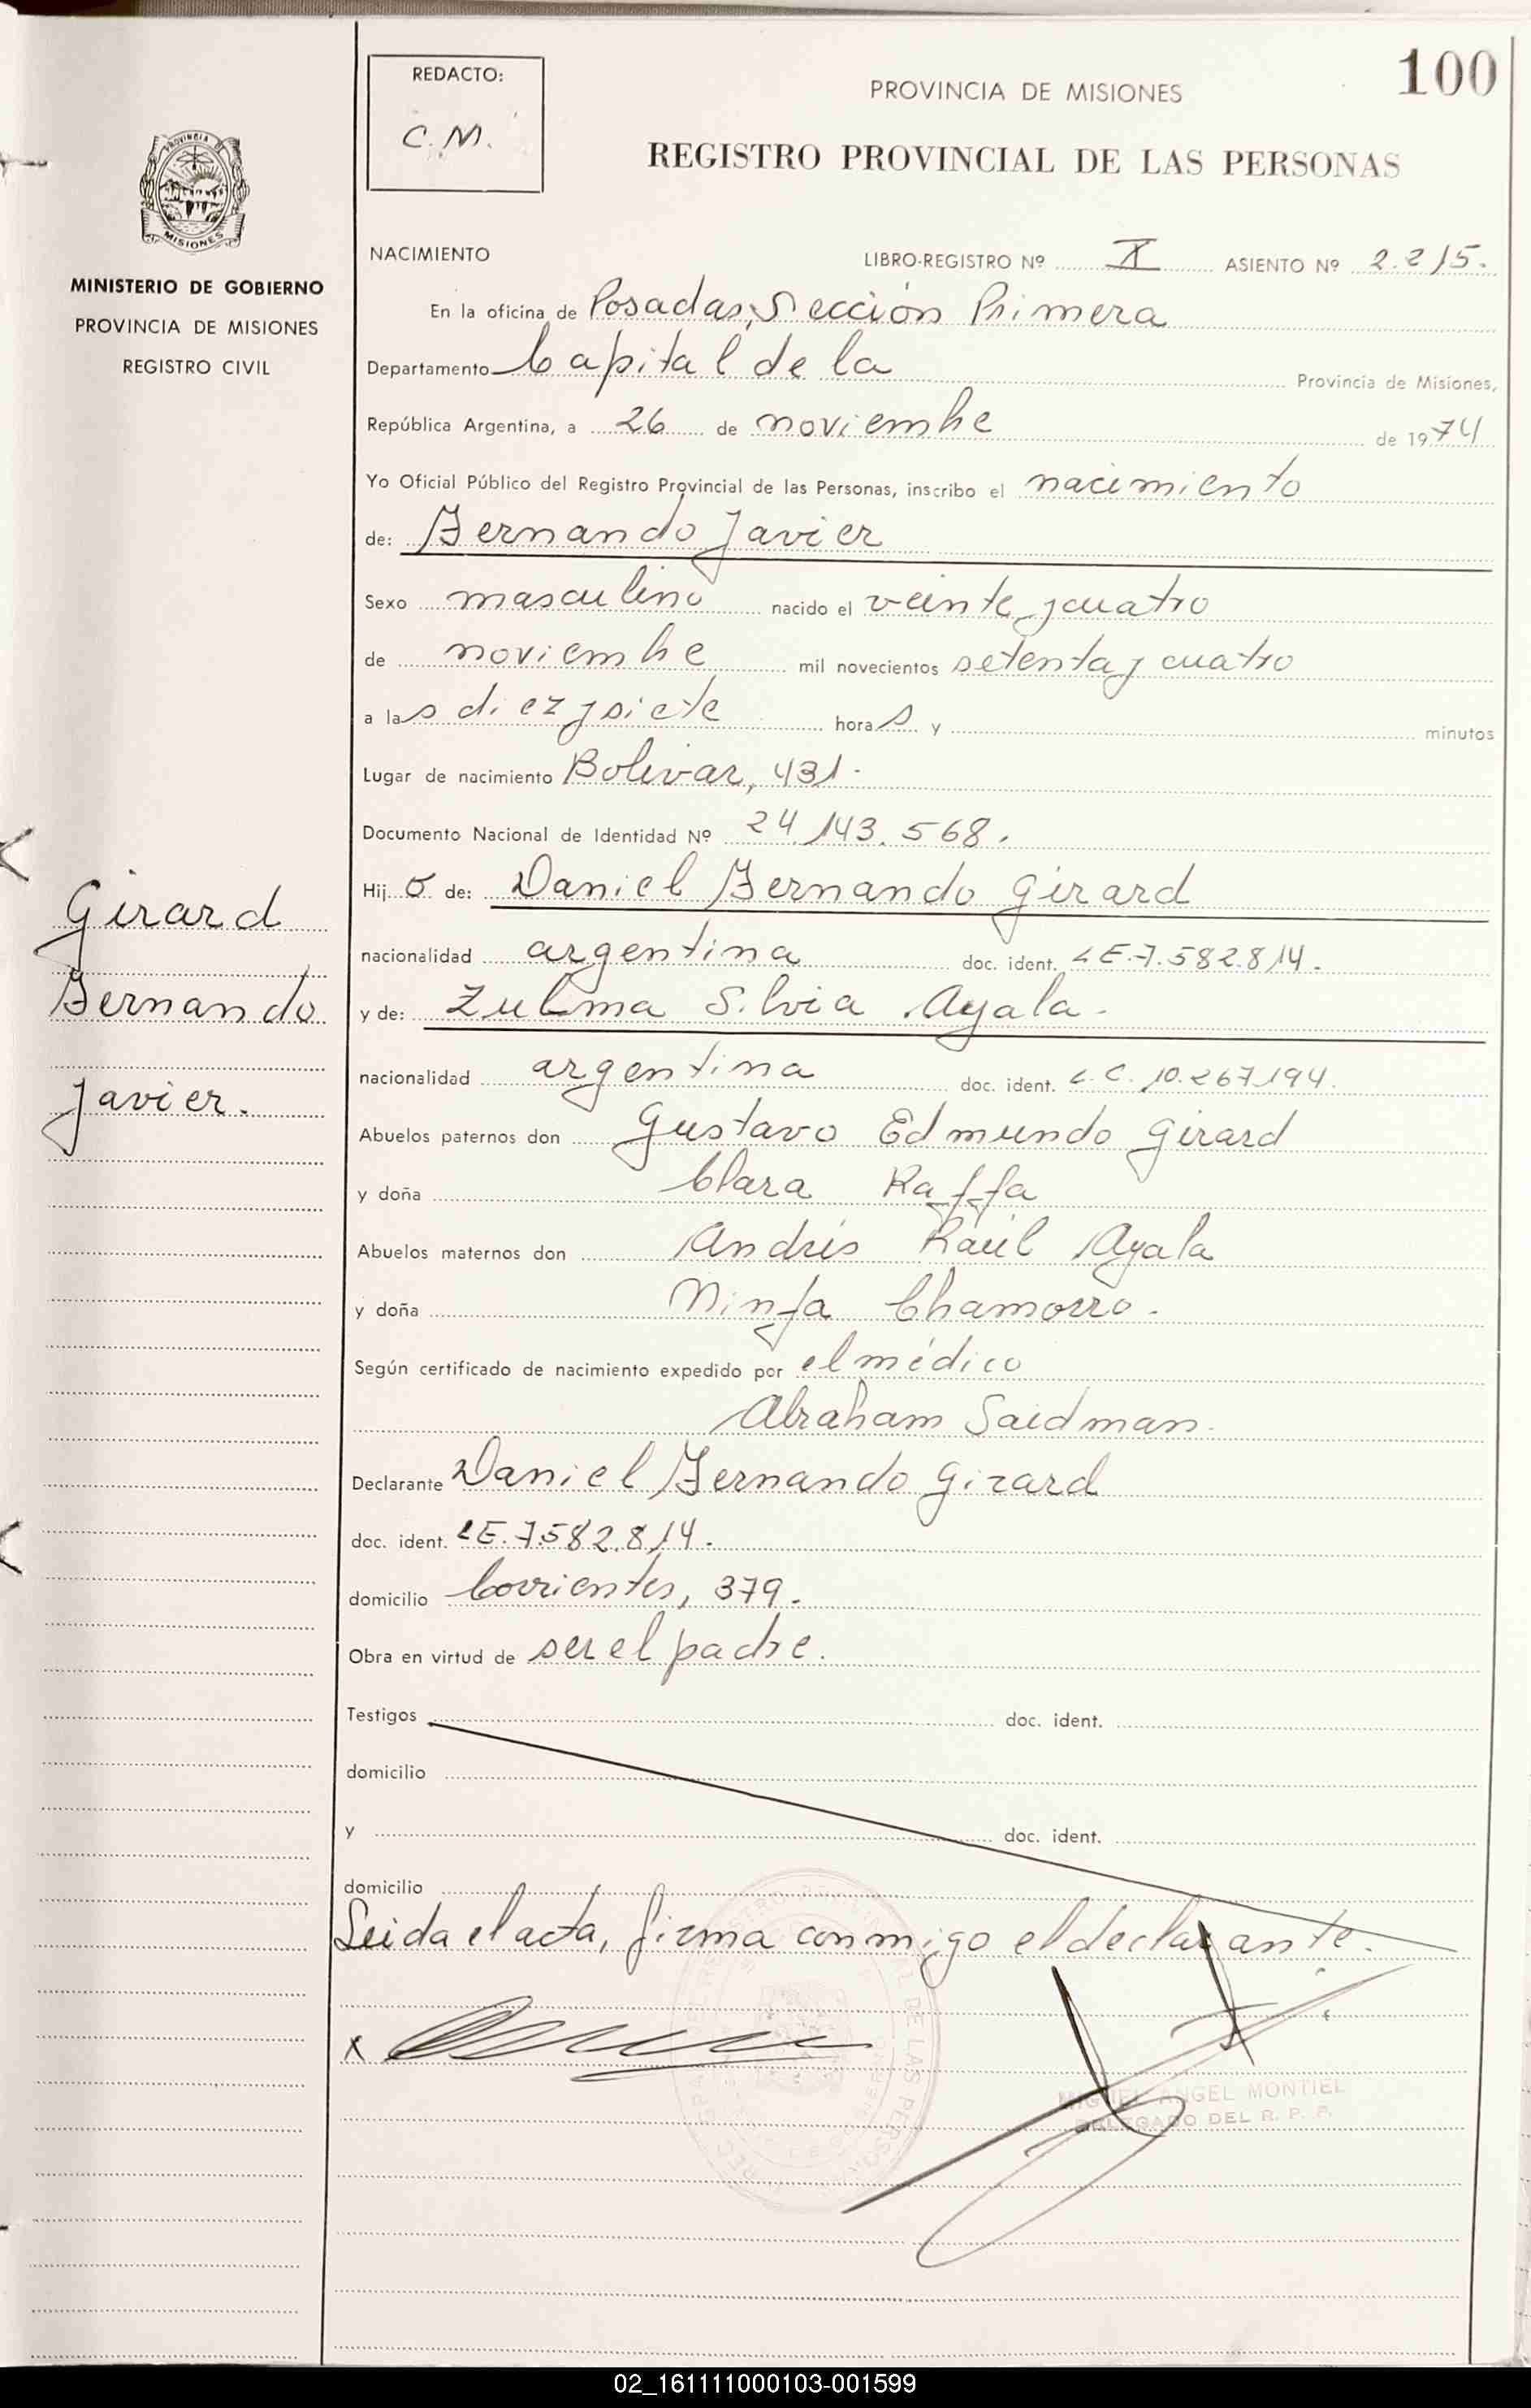 100
REDACTO:
C.M.
PROVINCIA DE MISIONES
REGISTRO PROVINCIAL DE LAS PERSONAS
PROVINCIA DE
MISIONES
MINISTERIO DE GOBIERNO
PROVINCIA DE MISIONES
REGISTRO CIVIL
NACIMIENTO LIBRO-REGISTRO Nº X ASIENTO Nº 2.215.
En la oficina de Posadas, Sección Primera
Departamento Capital de la Provincia de Misiones,
República Argentina, a 26 de noviembre de 1974
Yo Oficial Público del Registro Provincial de las Personas, inscribo el nacimiento
de: Fernando Javier
Sexo masculino nacido el veinte y cuatro
de noviembre mil novecientos setenta y cuatro
a las diez y siete horas y minutos
Lugar de nacimiento Bolivar, 431.
Documento Nacional de Identidad Nº 24.143.568.
Hijo de: Daniel Fernando Girard
nacionalidad argentina doc. ident. LE.7.582.814.
y de: Zulma Silvia Ayala.
nacionalidad argentina doc. ident. L.C. 10.267.194.
Abuelos paternos don Gustavo Edmundo Girard
y doña Clara Raffa
Abuelos maternos don Andrés Raúl Ayala
y doña Ninfa Chamorro.
Según certificado de nacimiento expedido por el médico
Abraham Saidman.
Declarante Daniel Fernando Girard
doc. ident. LE.7.582.814.
domicilio Corrientes, 379.
Obra en virtud de ser el padre.
Testigos doc. ident.
domicilio
y doc. ident.
domicilio
Leida el acta, firma conmigo el declarante.
x
MIGUEL ANGEL MONTIEL
DELEGADO DEL R. P. P.
Girard
Fernando
Javier.
02_161111000103-001599